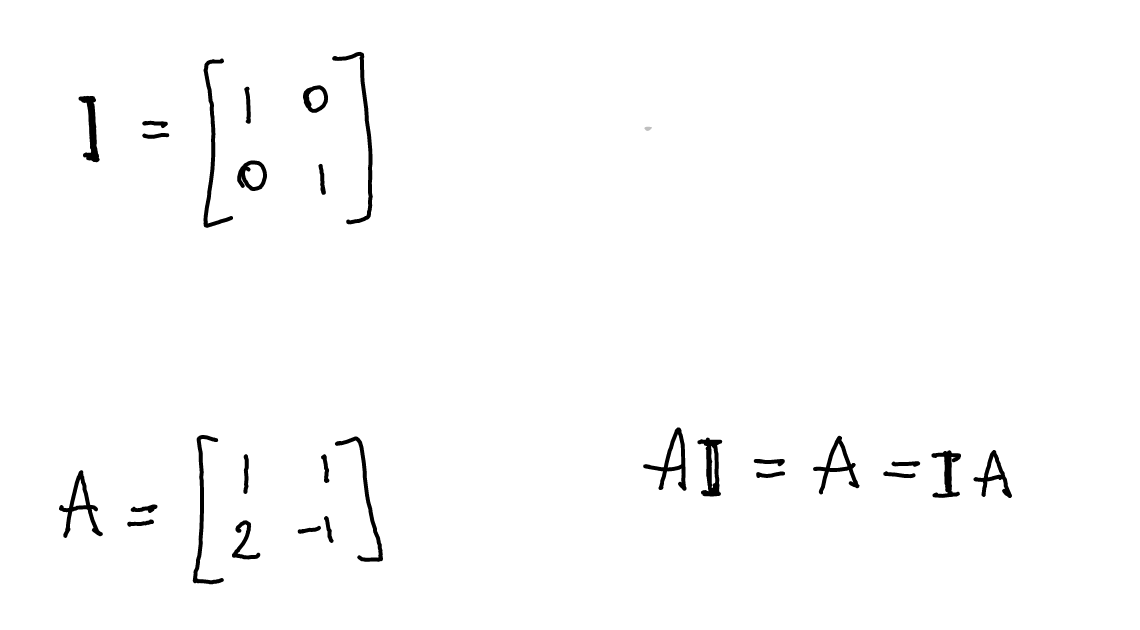 I = [1 0
0 1]
A = [1 1
2 -1]
AI = A = IA